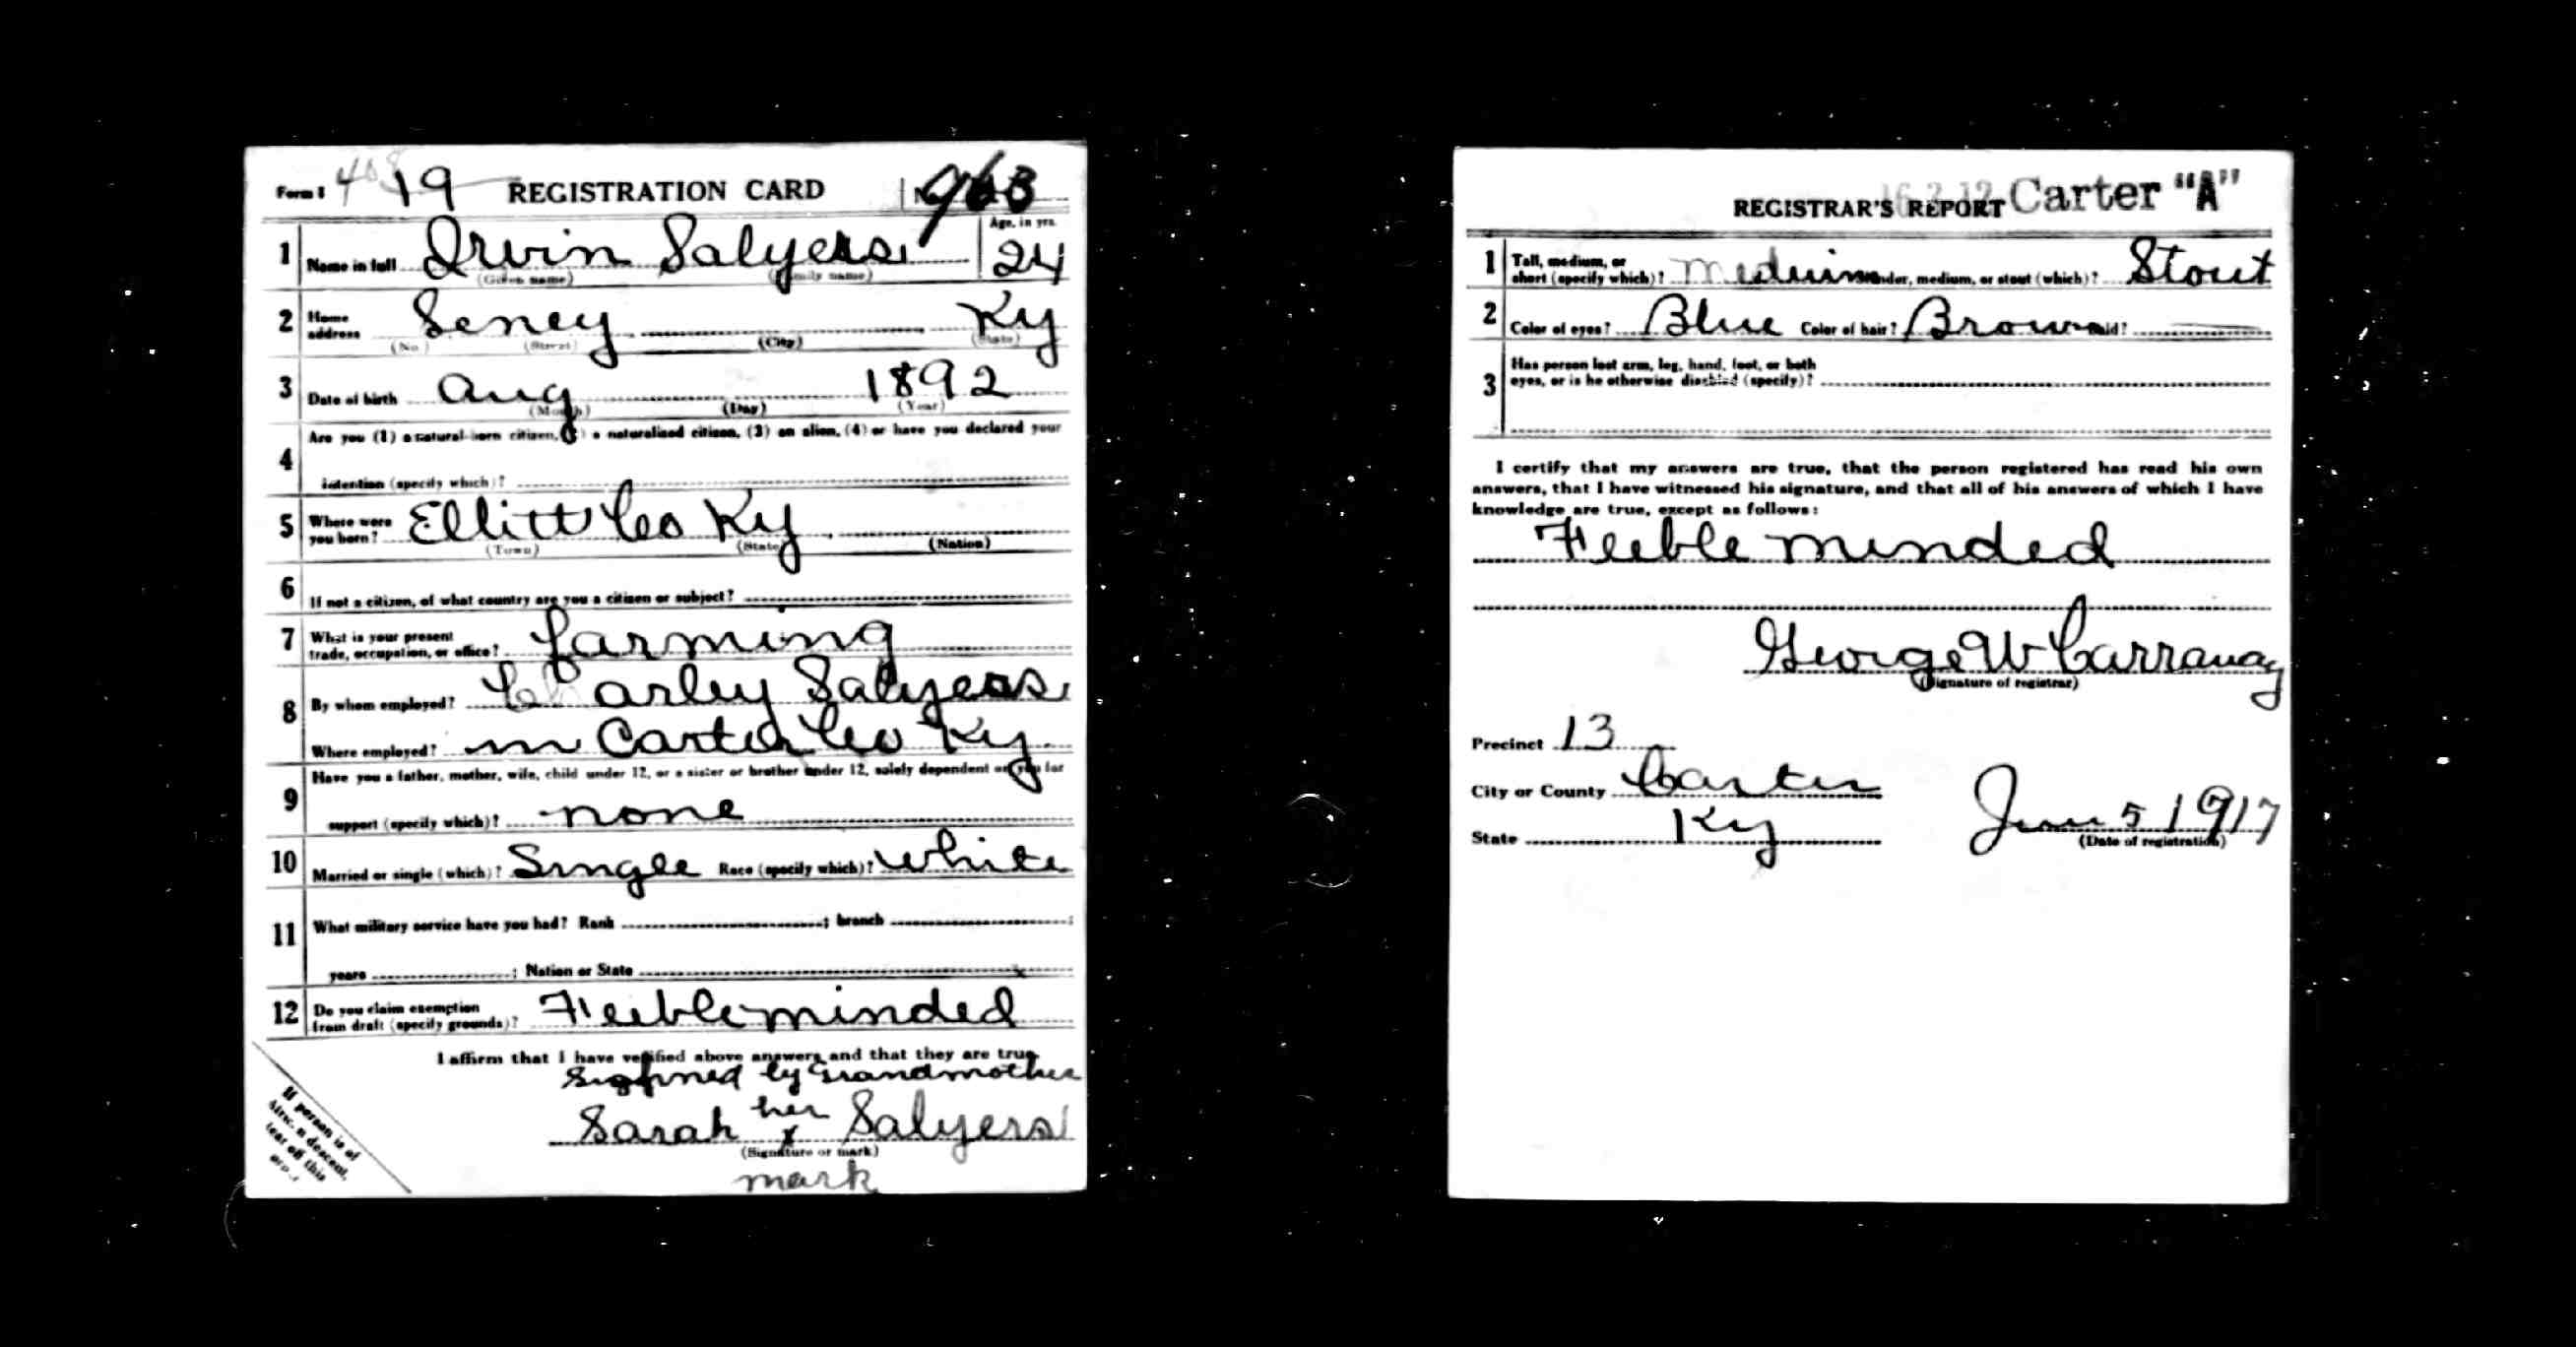 Form 1 19 REGISTRATION CARD No. 963
1 Name in full Irvin Salyers Age, in yrs. 24
(Given name) (Family name)
2 Home address Seney Ky
(No.) (Street) (City) (State)
3 Date of birth Aug 1892
(Month) (Day) (Year)
4 Are you (1) a natural-born citizen, (2) a naturalized citizen, (3) an alien, (4) or have you declared your
intention (specify which)?
5 Where were you born? Ellitt Co Ky
(Town) (State) (Nation)
6 If not a citizen, of what country are you a citizen or subject?
7 What is your present trade, occupation, or office? farming
8 By whom employed? Charley Salyers
Where employed? in Carter Co Ky
9 Have you a father, mother, wife, child under 12, or a sister or brother under 12, solely dependent on you for
support (specify which)? none
10 Married or single (which)? Single Race (specify which)? White
11 What military service have you had? Rank ; branch ;
years ; Nation or State
12 Do you claim exemption from draft (specify grounds)? Feebleminded
I affirm that I have verified above answers and that they are true.
by Grandmother
Sarah her x Salyers
(Signature or mark)
mark
If person is of
African descent,
tear off this
REGISTRAR'S REPORT Carter "A"
1 Tall, medium, or short (specify which)? Medium Slender, medium, or stout (which)? Stout
2 Color of eyes? Blue Color of hair? Brown Bald?
3 Has person lost arm, leg, hand, foot, or both
eyes, or is he otherwise disabled (specify)?
I certify that my answers are true, that the person registered has read his own
answers, that I have witnessed his signature, and that all of his answers of which I have
knowledge are true, except as follows:
Feeble minded
George W Carraway
(Signature of registrar)
Precinct 13
City or County Carter
State Ky June 5 1917
(Date of registration)